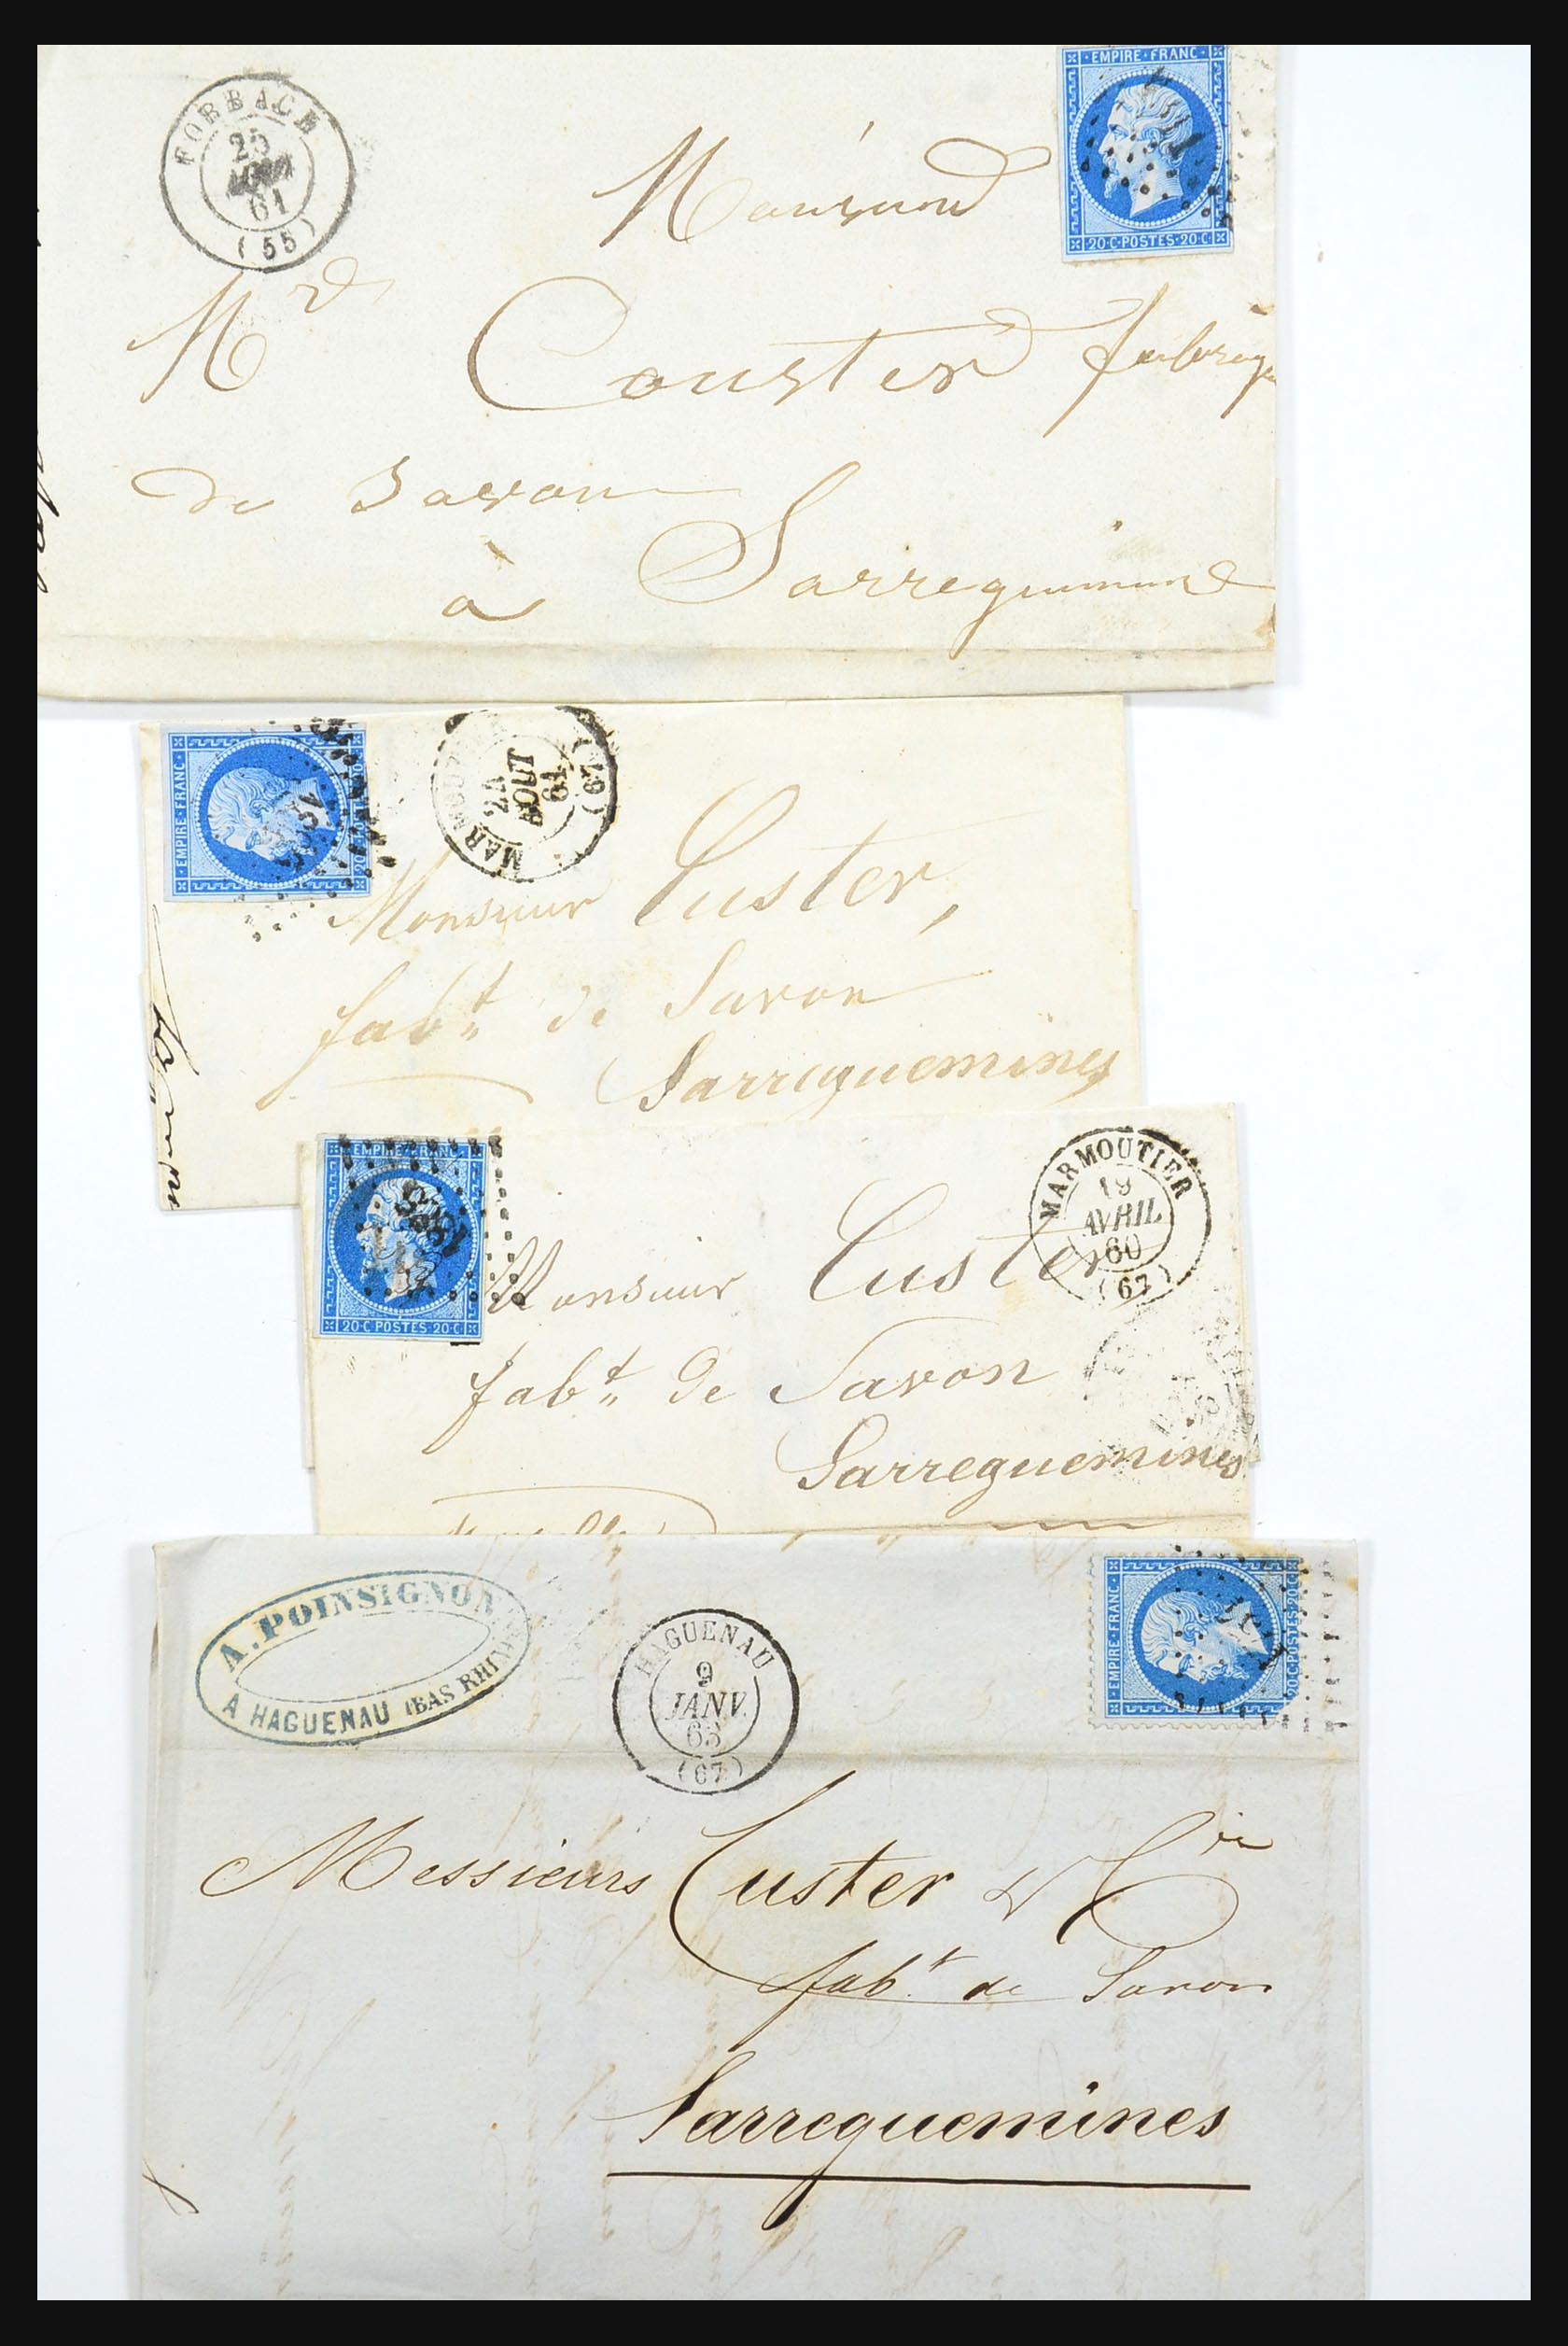 FORBACH
25
61
(55)
EMPIRE·FRANC·
20·C·POSTES·20·C·
Monsieur
Mr Couster fabriq
de Savon
à Sarreguemine
EMPIRE·FRANC·
MARMOUTIER
24
AOUT
61
(67)
Monsieur Custer,
fabt. de Savon
Sarreguemines
EMPIRE·FRANC
20·C·POSTES·20·C·
MARMOUTIER
19
AVRIL
60
(67)
Monsieur Custer
fabt. de Savon
Sarreguemines
A. POINSIGNON
A HAGUENAU (BAS RHIN)
HAGUENAU
9
JANV.
63
(67)
EMPIRE·FRANC·
20·C·POSTES·20·C·
Messieurs Custer & Cie
fabt. de Savon
Sarreguemines